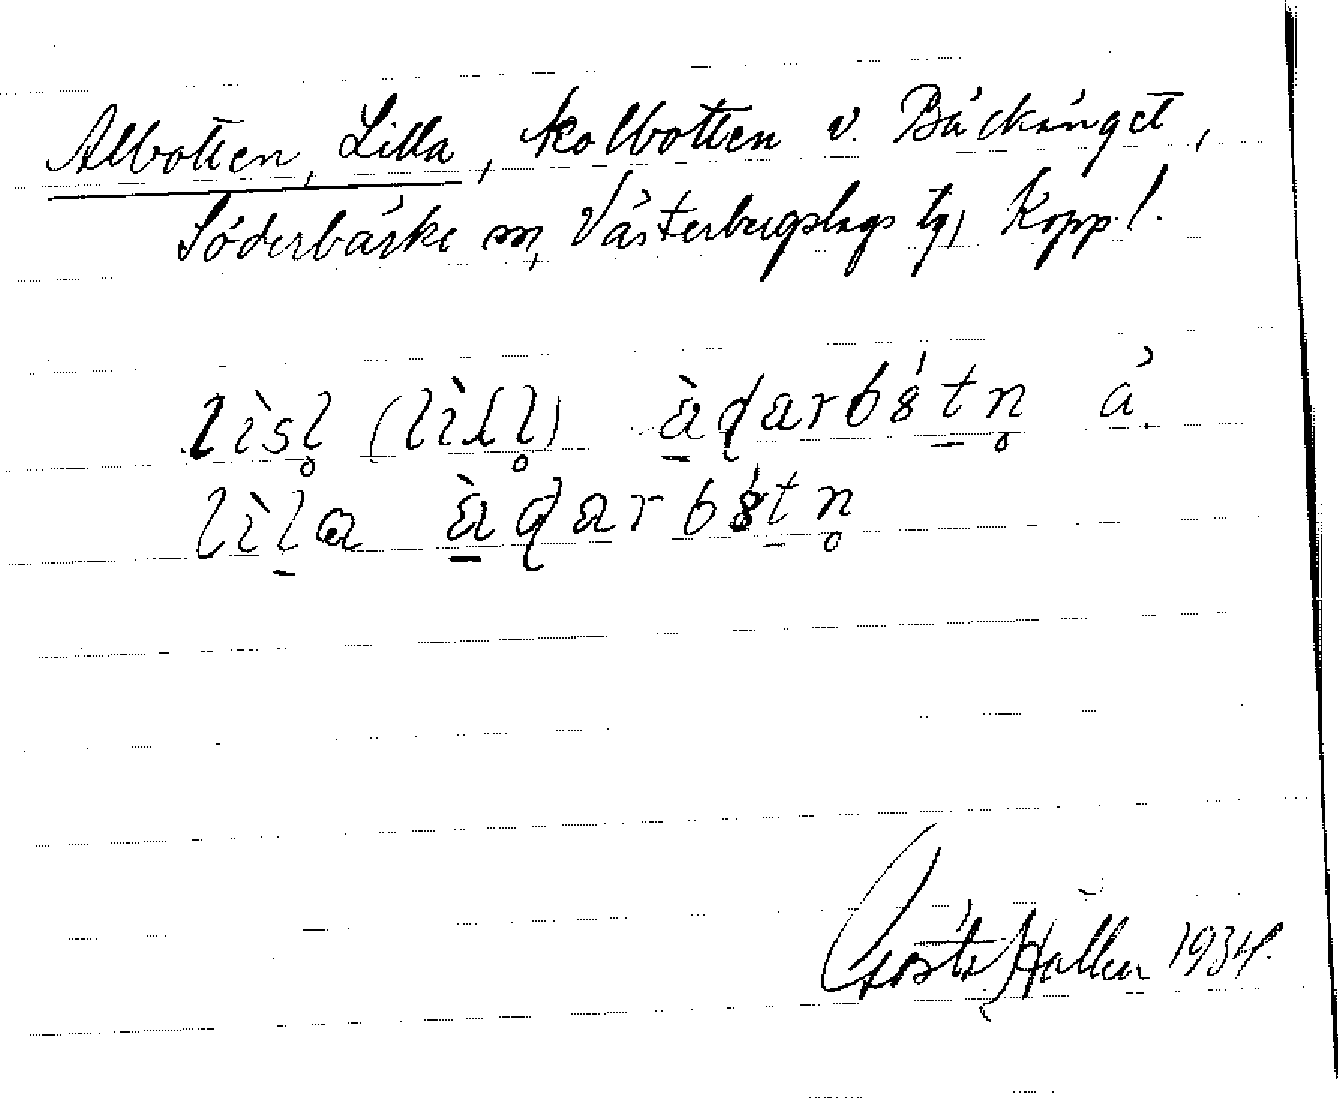 Albotten, Lilla, kolbotten v. Bäckänget,
Söderbärke sn, Västerbergslags tg, Kopp. l.
lìsl̥ (lìll̥) àdarbótn̥ å
lìla àdarbótn̥
Gösta Hallen 1934.